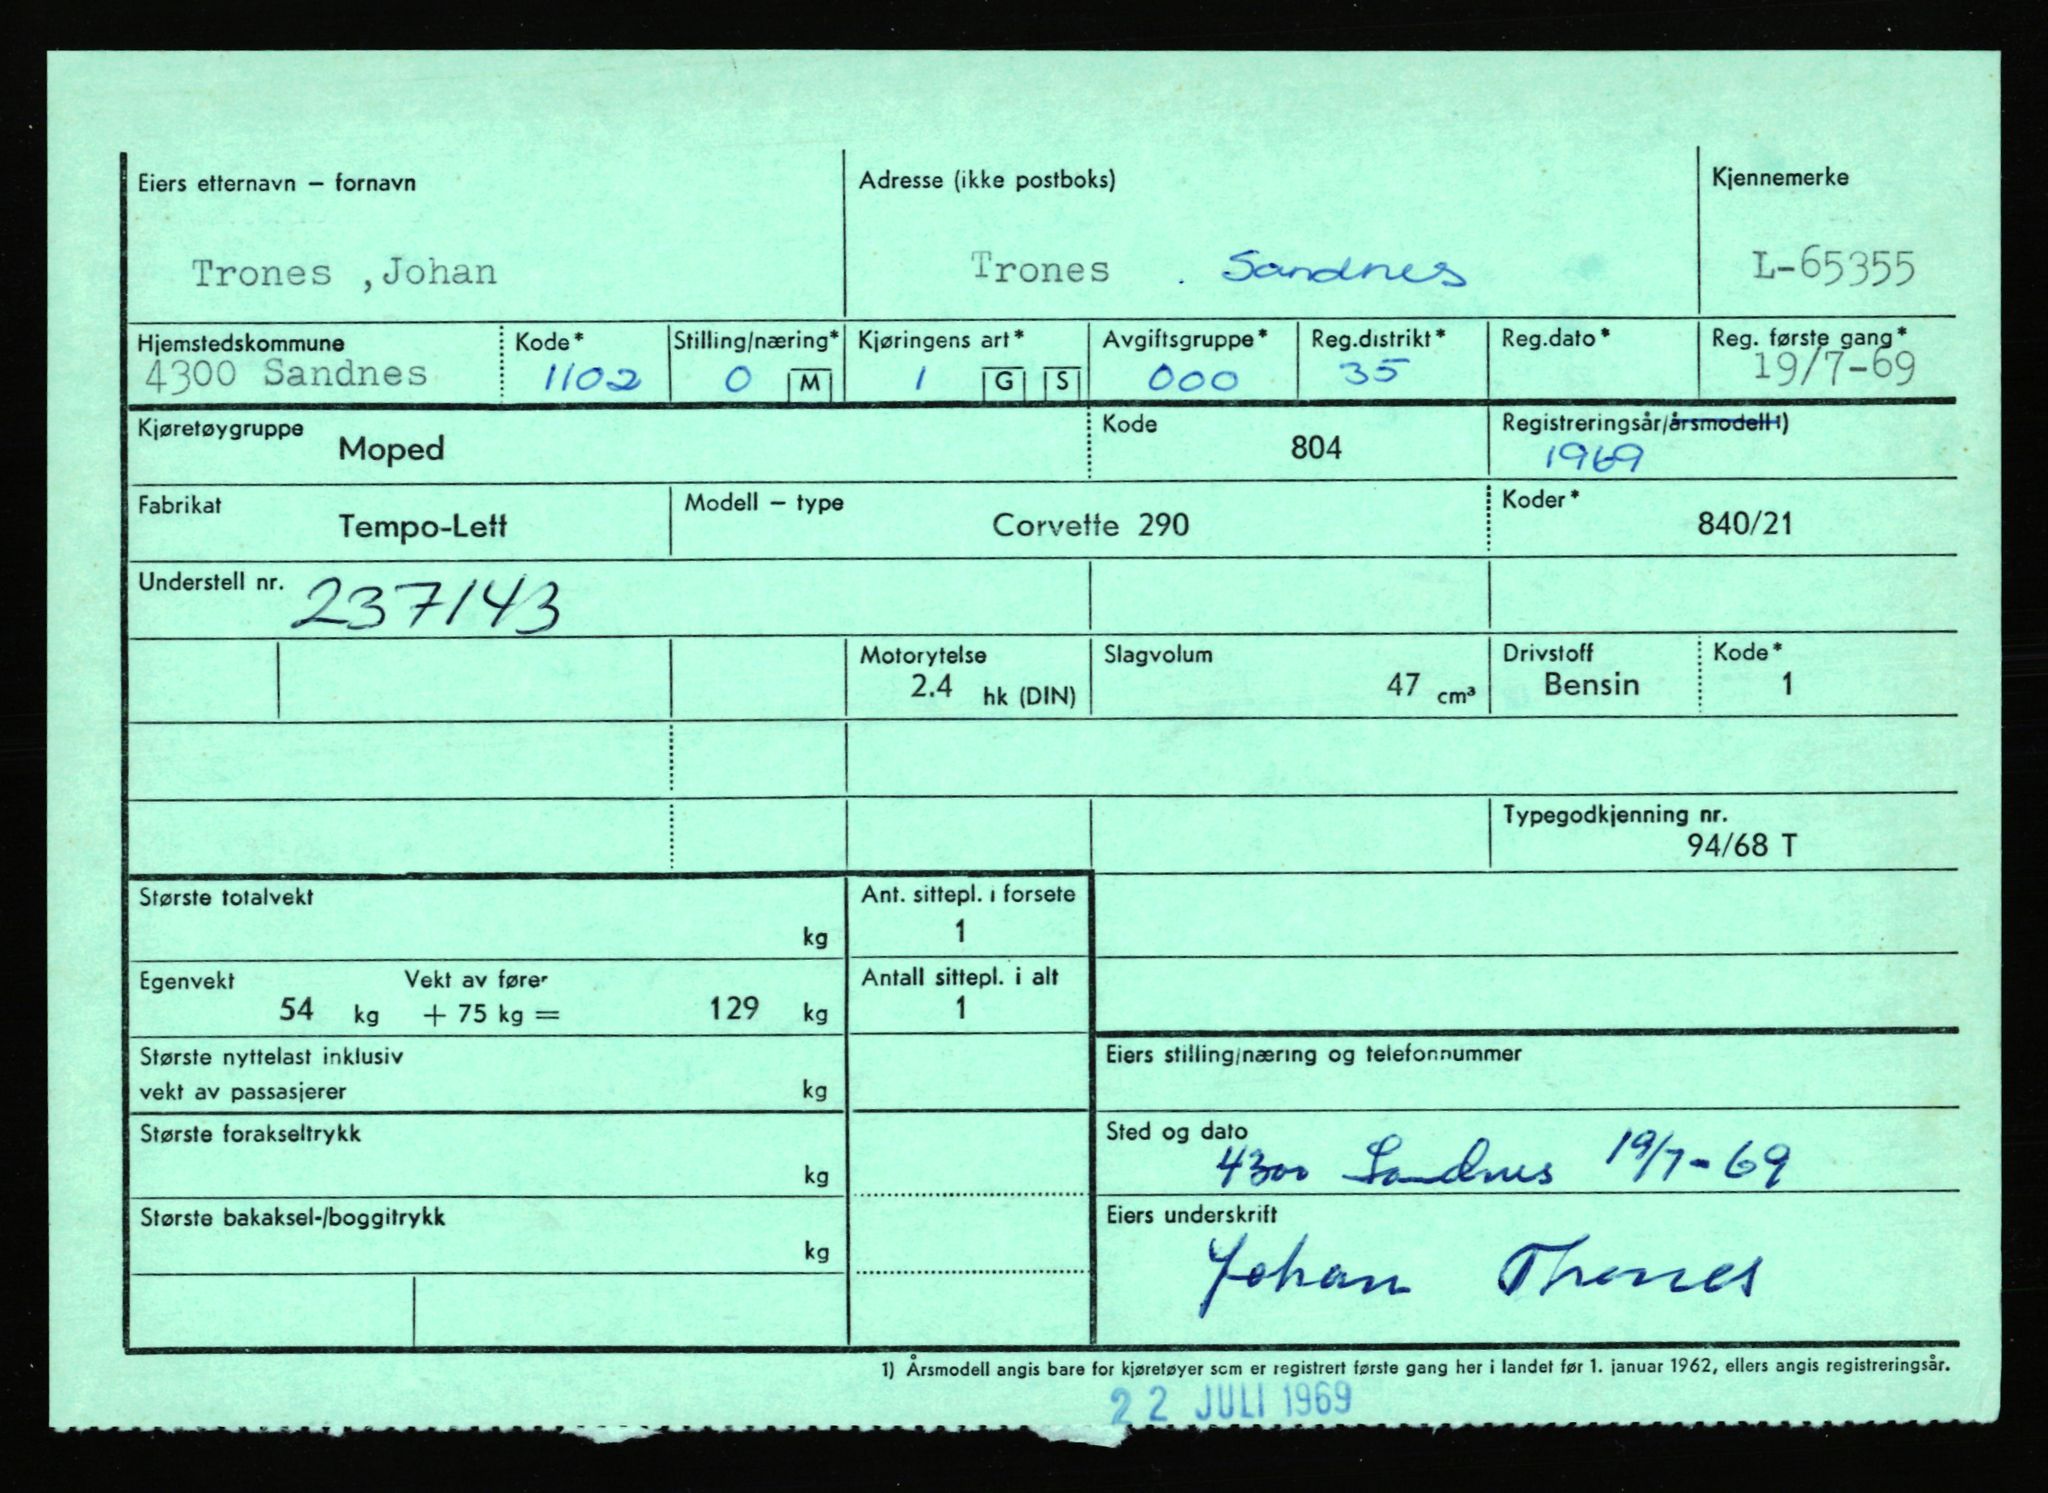 Eiers etternavn – fornavn Adresse (ikke postboks) Kjennemerke
Trones ,Johan Trones . Sandnes L-65355
Hjemstedskommune Kode* Stilling/næring* Kjøringens art* Avgiftsgruppe* Reg.distrikt* Reg.dato* Reg. første gang*
4300 Sandnes 1102 0 M 1 G S 000 35 19/7-69
Kjøretøygruppe Moped Kode 804 Registreringsår/årsmodell 1)
1969
Fabrikat Tempo-Lett Modell – type Corvette 290 Koder* 840/21
Understell nr. 237143
Motorytelse Slagvolum Drivstoff Kode*
2.4 hk (DIN) 47 cm³ Bensin 1
Typegodkjenning nr.
94/68 T
Største totalvekt kg Ant. sittepl. i forsete
1
Egenvekt Vekt av fører Antall sittepl. i alt
54 kg + 75 kg = 129 kg 1
Største nyttelast inklusiv Eiers stilling/næring og telefonnummer
vekt av passasjerer kg
Største forakseltrykk Sted og dato
kg 4300 Sandnes 19/7-69
Største bakaksel-/boggitrykk Eiers underskrift
kg Johan Thones
1) Årsmodell angis bare for kjøretøyer som er registrert første gang her i landet før 1. januar 1962, ellers angis registreringsår.
22 JULI 1969